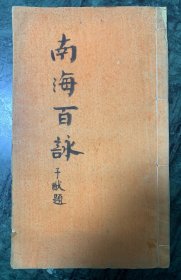 南海百詠
子猷題